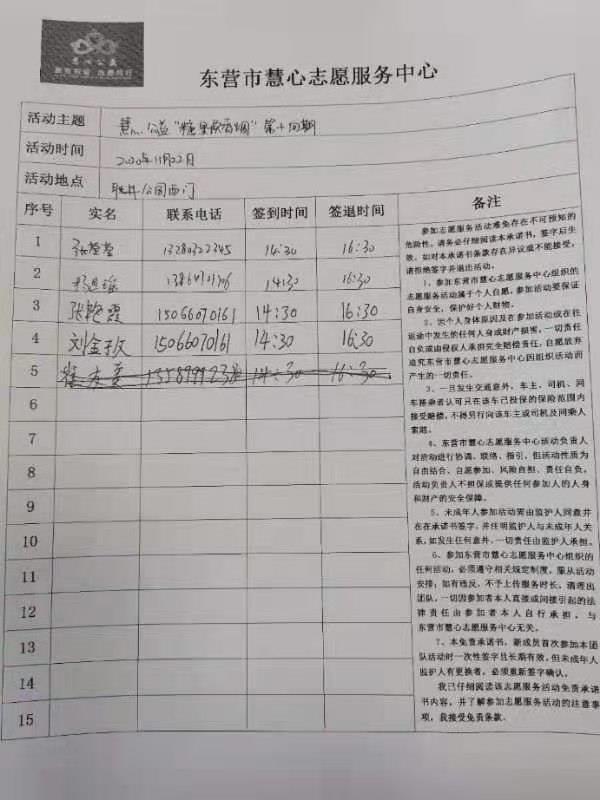 慧心公益
东营市慧心志愿服务中心
活动主题 慧心公益“糖果敲香烟”第十四期
活动时间 2020年11月22日
活动地点 胜井公园西门
序号 实名 联系电话 签到时间 签退时间 备注
1 14:30 16:30
2 14:30 16:30
3 张艳霞 15066070161 14:30 16:30
4 刘金 15066070161 14:30 16:30
5 14:30 16:30
6
7
8
9
10
11
12
13
14
15
参加志愿服务活动难免存在不可预知的
危险性，请务必仔细阅读本承诺书，签字后生
效，如对本承诺书条款存在异议或不能接受，
请拒绝签字并退出活动。
1、参加东营市慧心志愿服务中心组织的
志愿服务活动属于个人自愿，参加活动要保证
自身安全，保护好个人财物。
2、因个人身体原因及在参加活动或在往
返途中发生的任何人身或财产损害，一切责任
自负或由侵权人承担完全赔偿责任，自愿放弃
追究东营市慧心志愿服务中心因组织活动而
产生的一切责任。
3、一旦发生交通意外，车主、司机、同
车搭乘者认可只在该车已投保的保险范围内
接受赔偿，不得另行向该车主或司机及同乘人
索赔。
4、东营市慧心志愿服务中心活动负责人
对活动进行协调、联络、指引，但活动性质为
自由结合、自愿参加、风险自担、责任自负，
活动负责人不担保或提供任何参加人的人身
和财产的安全保障。
5、未成年人参加活动需由监护人同意并
在在承诺书签字，并注明监护人与未成年人关
系，如发生任何意外，一切责任由监护人承担。
6、参加东营市慧心志愿服务中心组织的
任何活动，必须遵守相关规定制度，服从活动
安排；如有违反，不予上传服务时长，请理出
团队。一切因参加者本人直接或间接引起的法
律责任由参加者本人自行承担，与
东营市慧心志愿服务中心无关。
7、本免责承诺书，新成员首次参加本团
队活动时一次性签字且长期有效，但未成年人
监护人有更换者，必须重新签字确认。
我已仔细阅读该志愿服务活动免责承诺
书内容，并了解参加志愿服务活动的注意事
项，我接受免责条款。